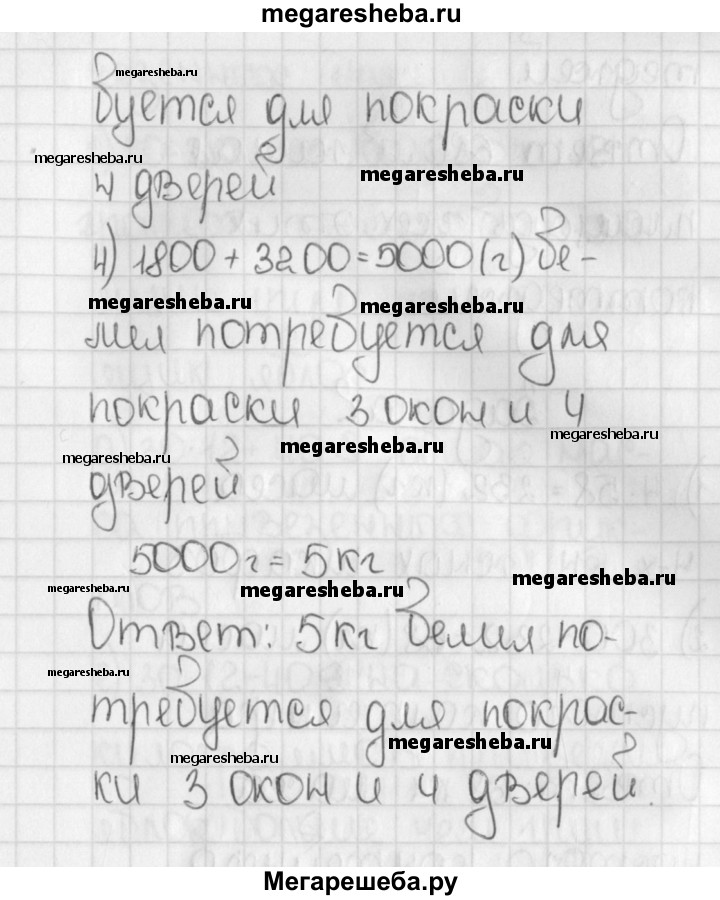 megaresheba.ru
megaresheba.ru
буется для покраски
megaresheba.ru
megaresheba.ru
4 дверей
4) 1800 + 3200 = 5000 (г) бе-
megaresheba.ru
megaresheba.ru
лил потребуется для
покраски 3 окон и 4
megaresheba.ru
megaresheba.ru
megaresheba.ru
дверей
5000 г = 5 кг
megaresheba.ru
megaresheba.ru
megaresheba.ru
Ответ: 5 кг белил по-
megaresheba.ru
требуется для покрас-
megaresheba.ru
megaresheba.ru
ки 3 окон и 4 дверей.
Мегарешеба.ру